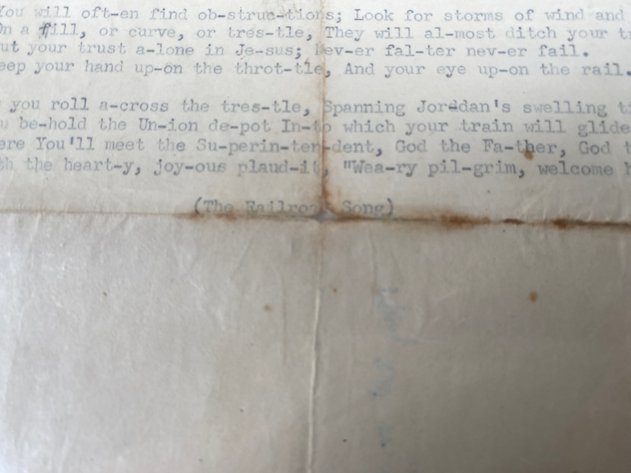 You will oft-en find ob-struc-tions; Look for storms of wind and
On a fill, or curve, or tres-tle, They will al-most ditch your
ut your trust a-lone in Je-sus; Nev-er fal-ter nev-er fail.
eep your hand up-on the throt-tle, And your eye up-on the rail.
you roll a-cross the tres-tle, Spanning Jordan's swelling
u be-hold the Un-ion de-pot In-to which your train will glide
ere You'll meet the Su-perin-ten-dent, God the Fa-ther, God
th the heart-y, joy-ous plaud-it, "Wea-ry pil-grim, welcome
(The Railroad Song)